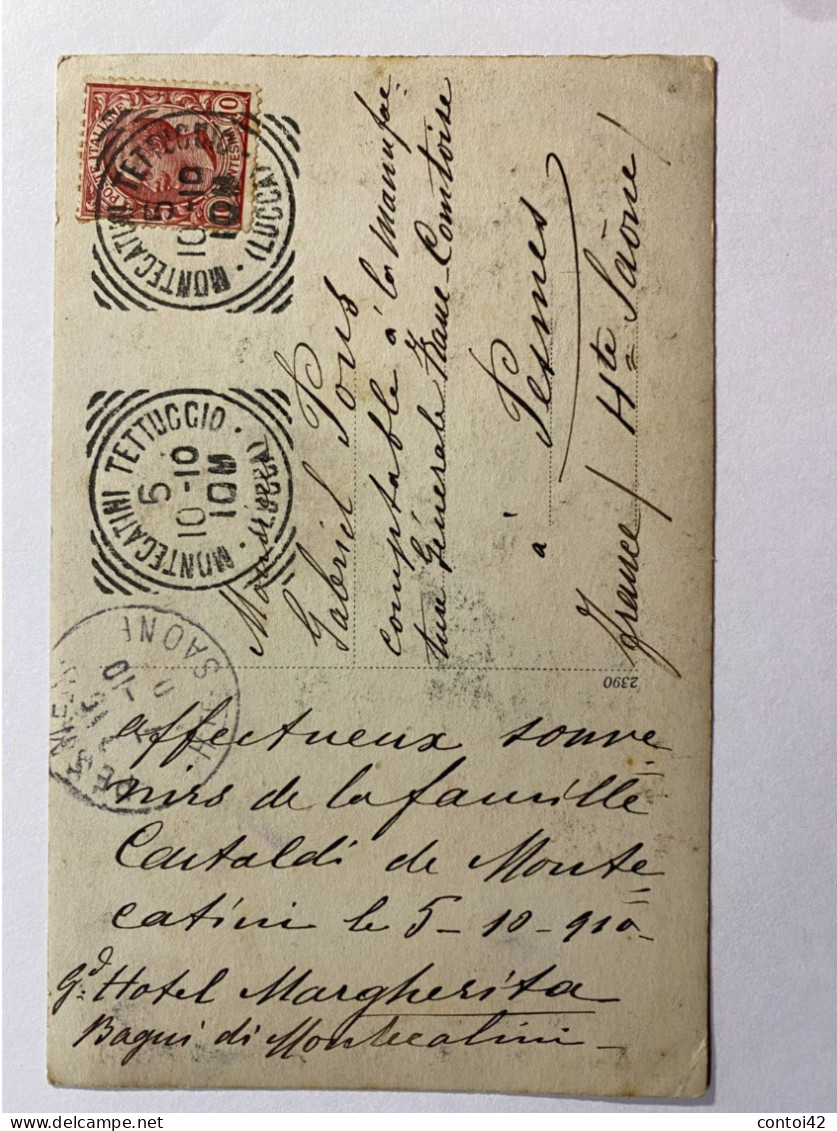 POSTE ITALIANE
10
MONTECATINI TETTUCCIO · (LUCCA) ·
5
10-10
10M
MONTECATINI TETTUCCIO · (LUCCA) ·
5
10-10
10M
Monsieur
Gabriel Pons
comptable à la Manufac=
ture Générale Franc-Comtoise
à Pesmes
France / Hte Saône /
2390
PESMES
SAONE
affectueux souve=
nirs de la famille
Castaldi de Monte=
catini le 5-10-910-
Gd= Hotel Margherita
Bagni di Montecatini-
Delcampe.net
contoi42